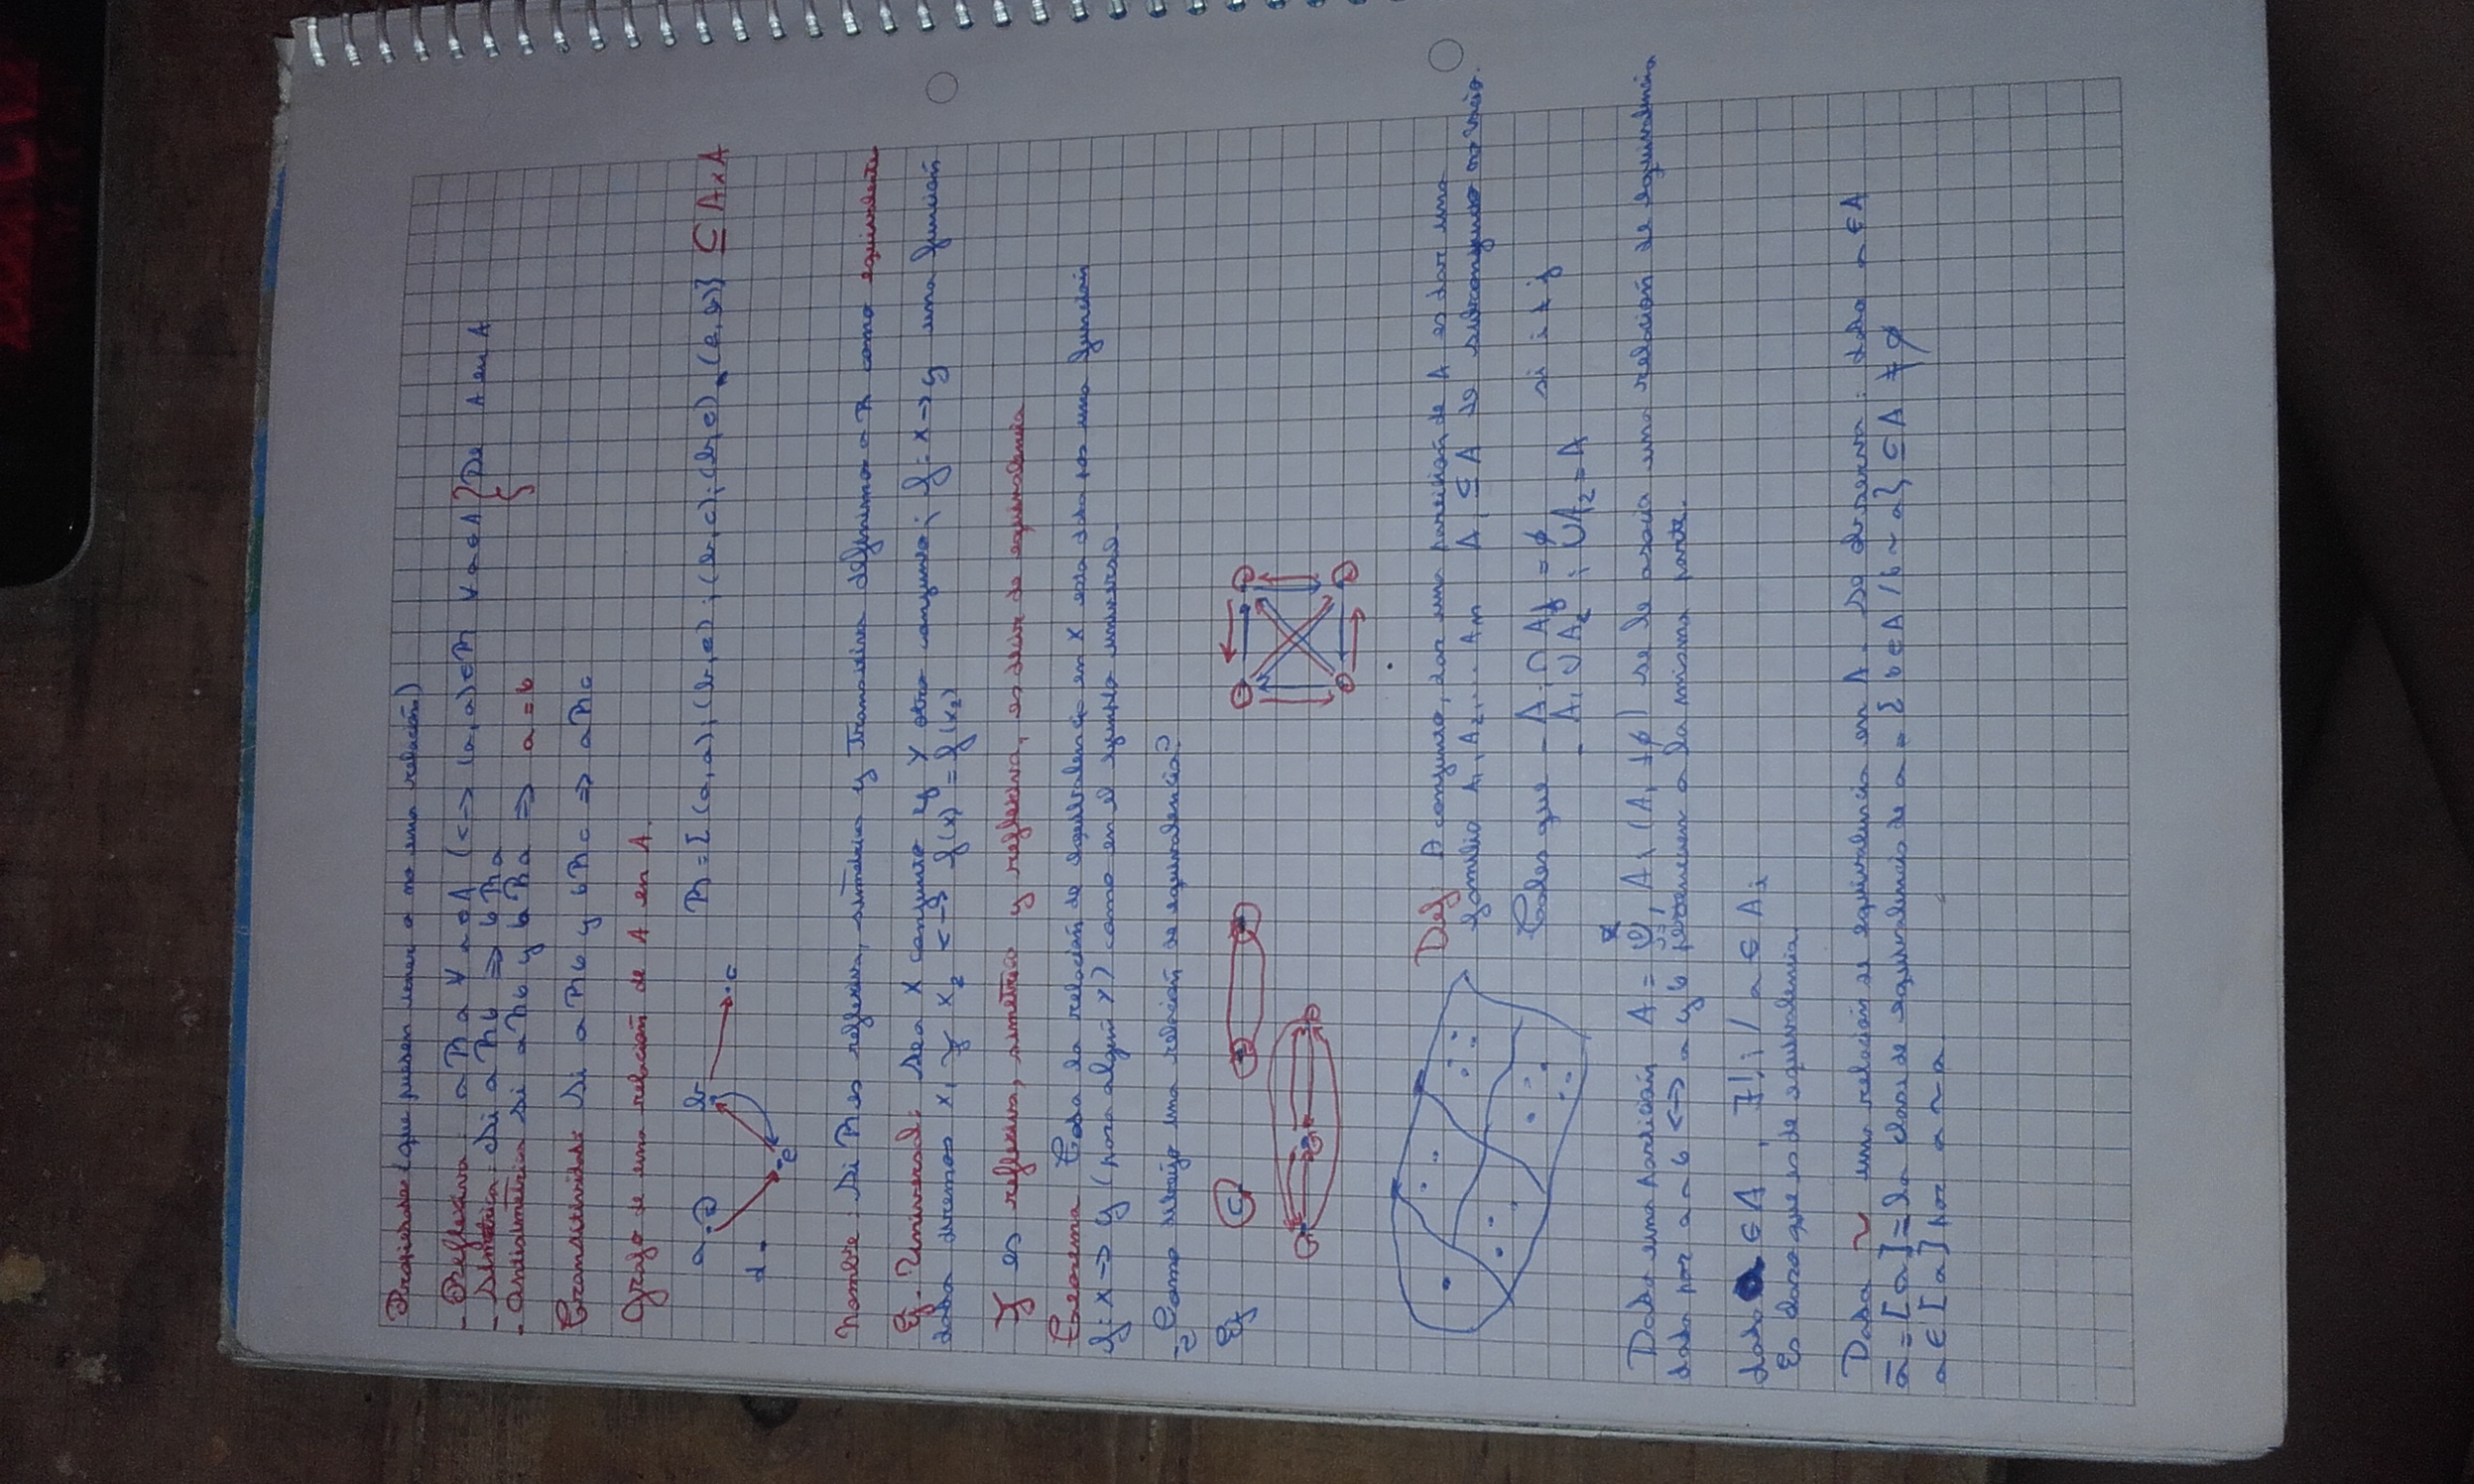 Propiedades (que pueden tener o no una relación)
- Reflexiva: a R a ∀ a ∈ A (<-> (a, a) ∈ R ∀ a ∈ A } De A en A
- Simétrica: Si a R b => b R a
- Antisimétrica Si a R b y b R a => a = b
Transitividad: Si a R b y b R c => a R c
Grafo de una relación de A en A.
a b c d e
R = { (a, a); (b, e); (b, c); (b, e), (e, b)} ⊆ A x A
Nombre: Si R es reflexiva, simétrica y Transitiva definimos a R como equivalente
Ej. Universal: Sea X conjunto y Y otro conjunto; f: X -> y una función
dada diremos x₁ ~f x₂ <-> f(x) = f(x₂)
es reflexiva, simétrica y reflexiva, es decir de equivalencia
Teorema Toda la relación de equivalencia en X esta dada por una función
f: X -> y (para algún Y) como en el ejemplo universal.
¿Como dibujo una relación de equivalencia?
Ej
Def A conjunto, dar una partición de A es dar una
familia A₁, A₂, ... An A ⊆ A de subconjunto no vacio.
Tales que - Ai ∩ Aj = ∅ si i ≠ j
- A₁ ∪ A₂ ; ∪ A₂ = A
Dada una partición A = ∪ Ai (Ai ≠ ∅) se le asocia una relación de equivalencia
dada por a ~ b <-> a y b pertenecen a la misma parte.
dado a ∈ A, ∃! i / a ∈ Ai
Es claro que es de equivalencia
Dada ~ una relación de equivalencia en A. Se observa: dado a ∈ A
ā = [a] = la clase de equivalencia de a = { b ∈ A / b ~ a} ⊆ A ≠ ∅
a ∈ [a] por a ~ a